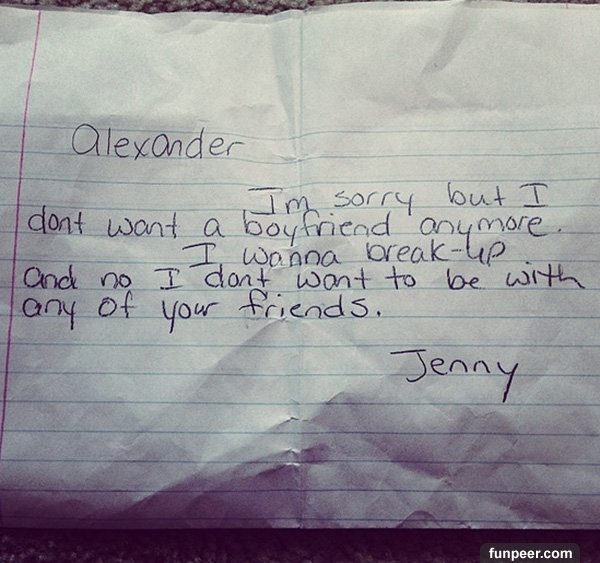 Alexander
Im sorry but I
dont want a boyfriend anymore.
I wanna break-up
and no I dont want to be with
any of your friends.
Jenny
funpeer.com